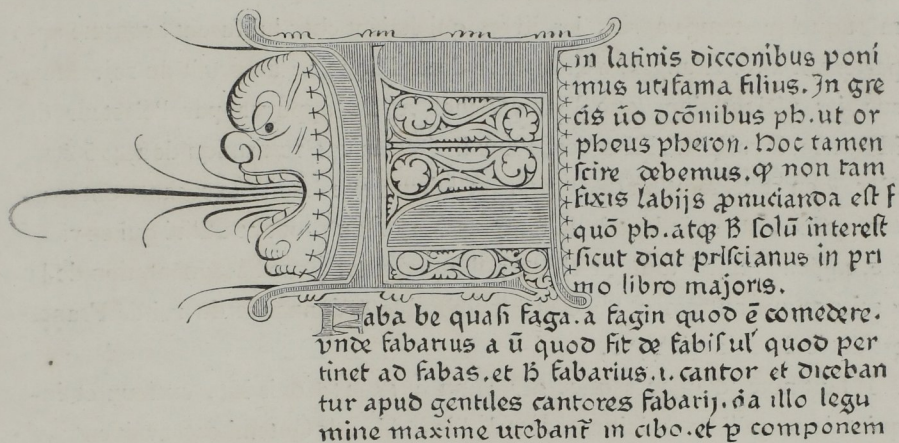 F in latinis dicconibus poni
mus ut fama filius. In gre
cis ũo dcõnibus ph. ut or
pheus pheron. Hoc tamen
scire debemus. ꝙ non tam
fixis labijs ꝓnuncianda est f
quõ ph. atqꝫ B solũ interest
sicut dicit priscianus in pri
mo libro majoris.
Faba be quasi faga. a fagin quod ẽ comedere.
vnde fabarius a ũ quod fit de fabis ul' quod per
tinet ad fabas. et B fabarius. i. cantor et diceban
tur apud gentiles cantores fabarij. illo legu
mine maxime utebant̃ in cibo. et ꝑ componem